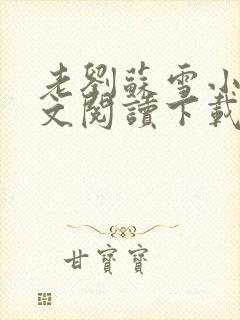 老劉蘇雪小
文閱讀下載
甘寶寶